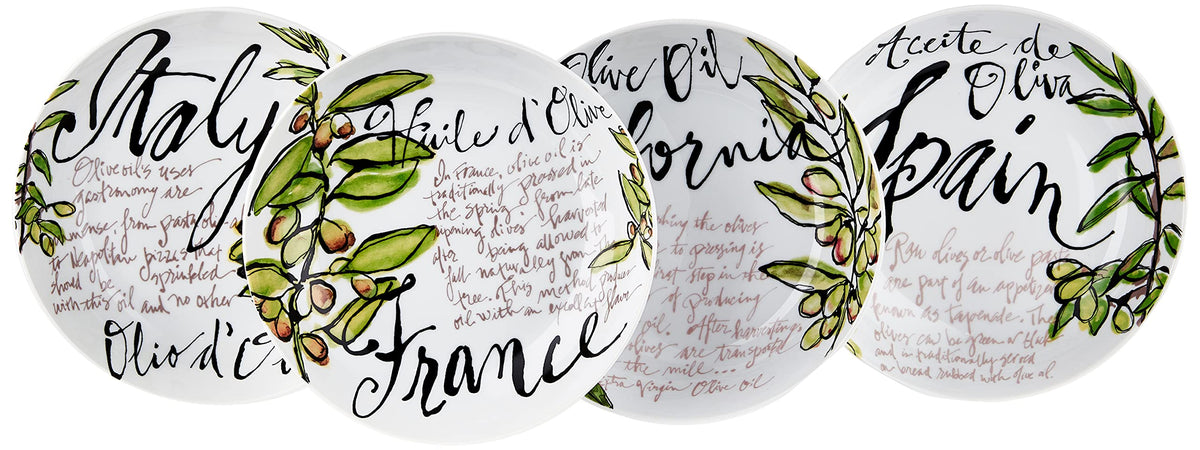 Italy
Olive oil's uses
gastronomy are
immense, from pasta
to Neapolitan pizzas that
should be sprinkled
with this oil and no other
Olio d'O
Huile d'Olive
In France, olive oil is
traditionally pressed in
the spring from late
ripening olives harvested
after being allowed to
fall naturally from the
tree. This method produces
oil with an excellent flavor
France
Olive Oil
fornia
shing the olives
to pressing is
first step in the
of producing
oil. After harvesting
olives are transported
the mill...
Extra Virgin Olive Oil
Aceite de
Oliva
Spain
Raw olives or olive paste
are part of an appetizer
known as tapenade. The
olives can be green or black
and is traditionally served
on bread rubbed with olive oil.